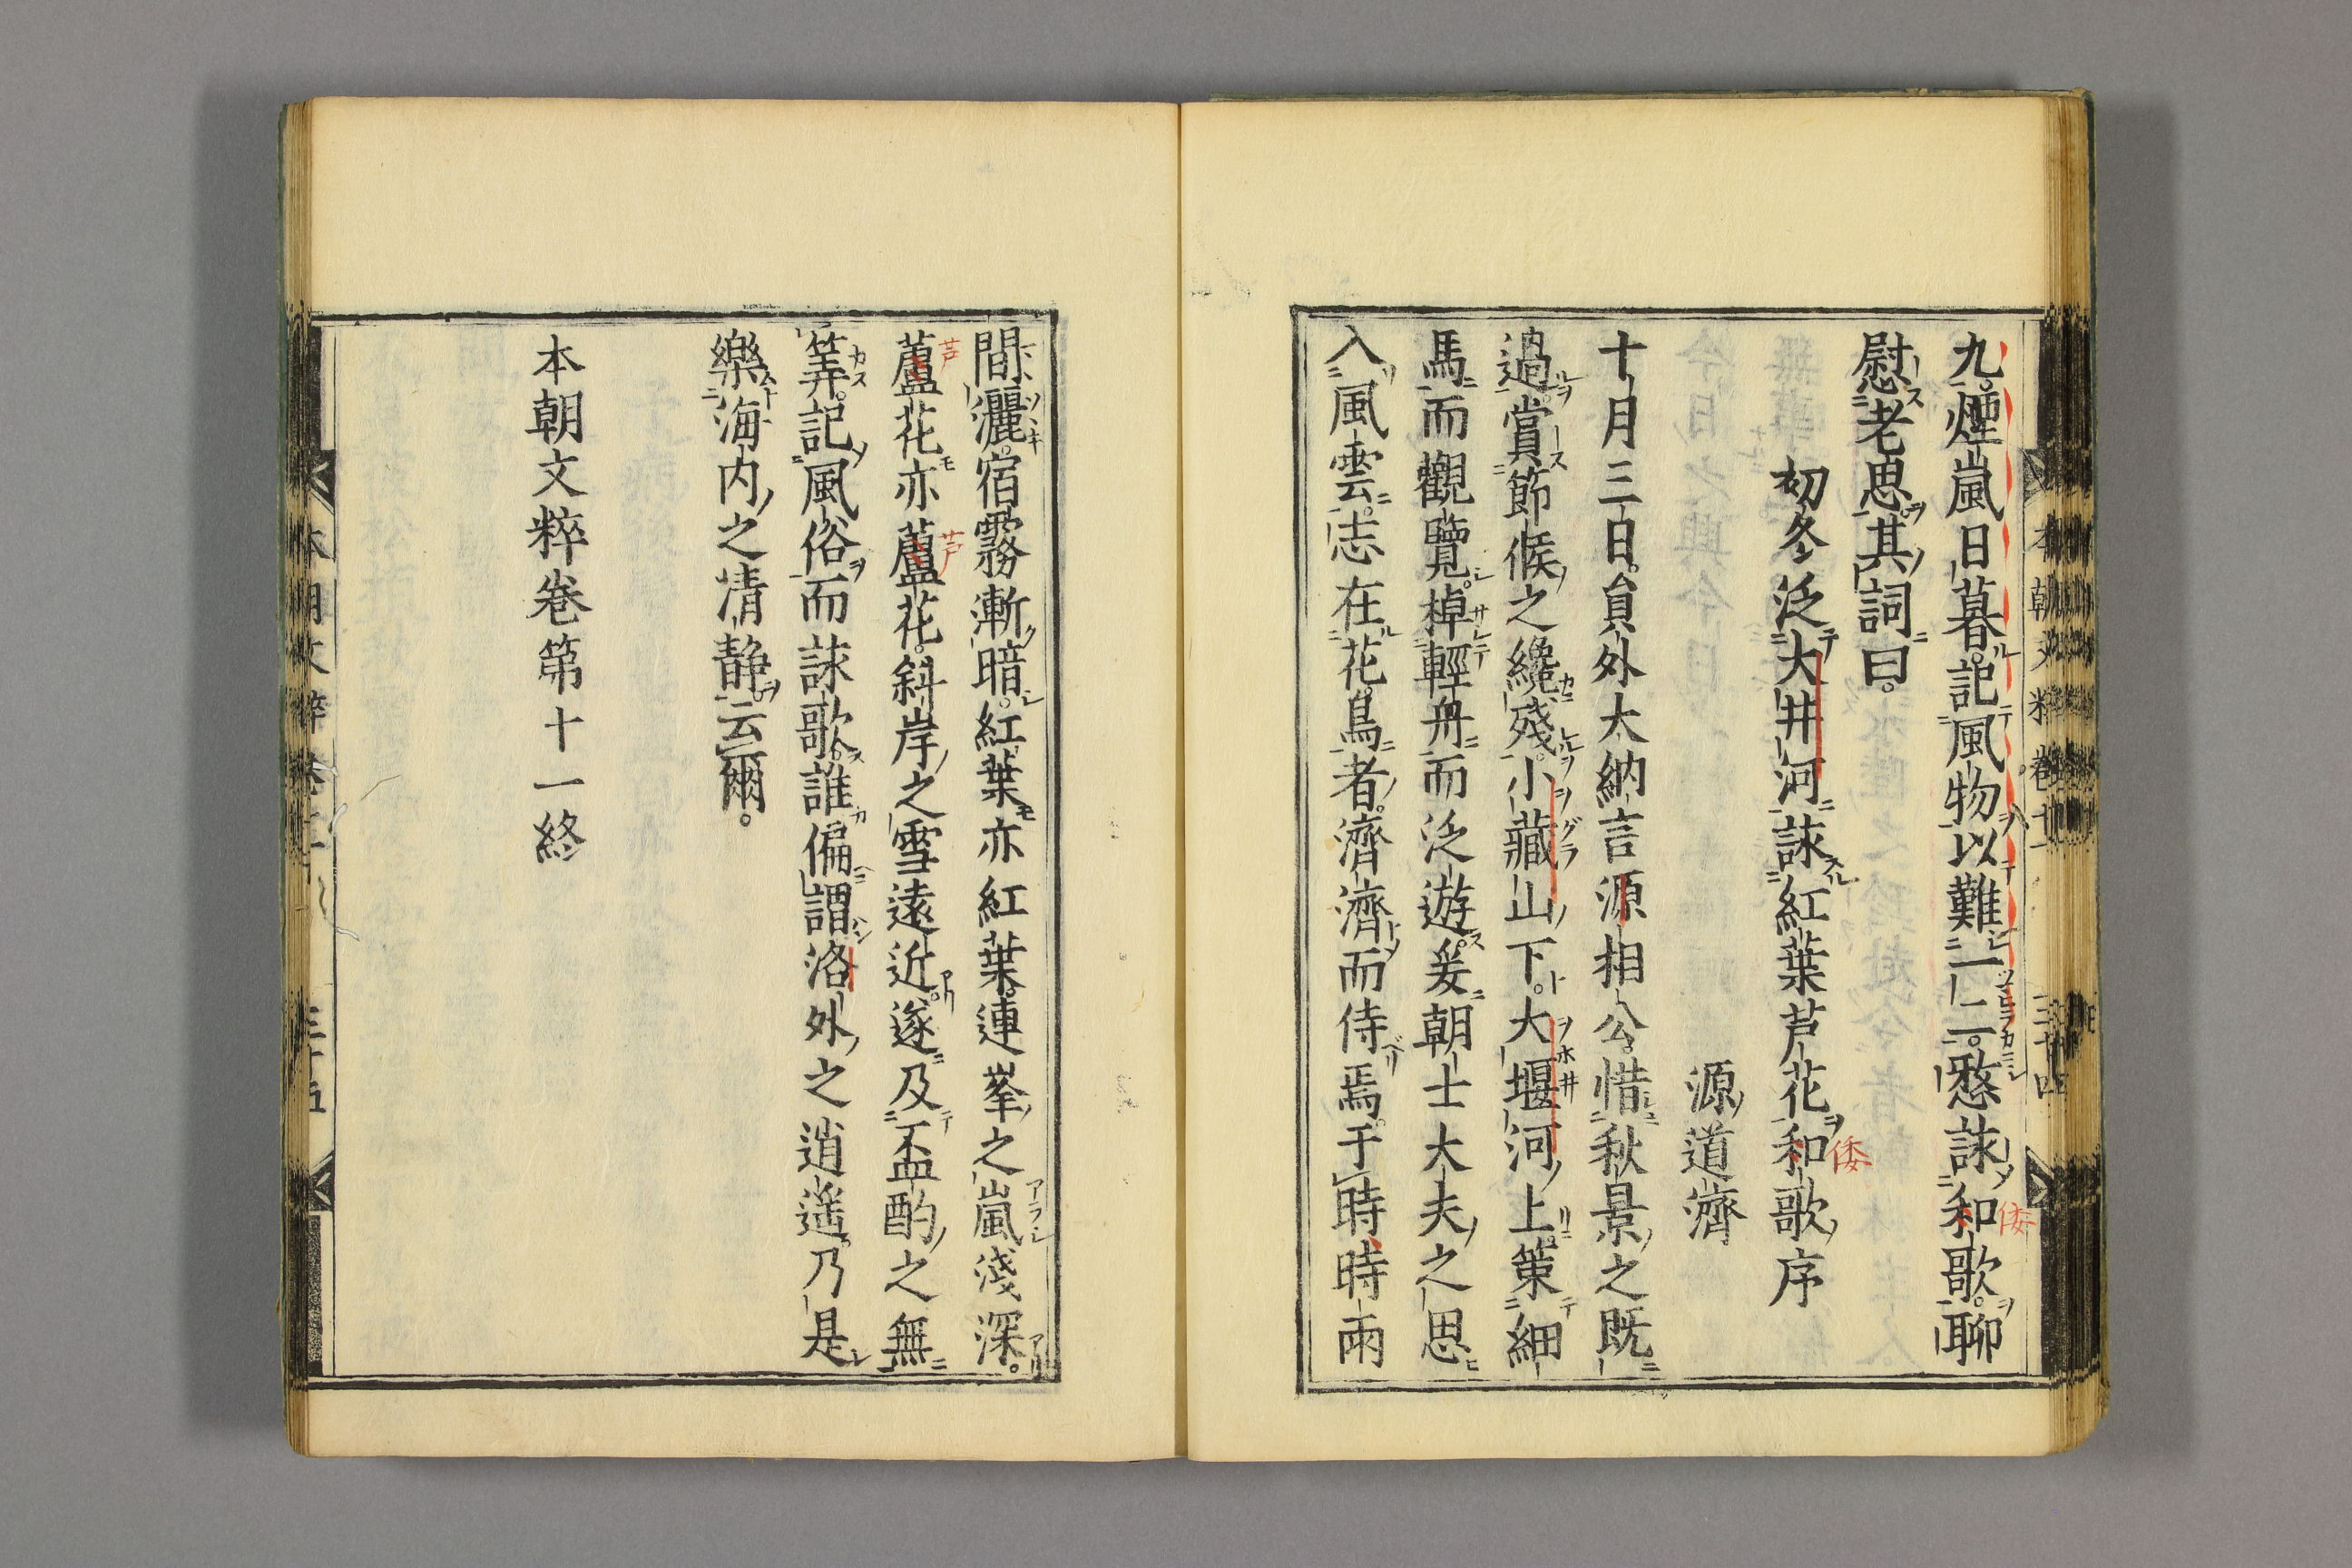 九煙嵐日暮記風物以難一二慭詠和歌聊
慰老思其詞曰
初冬泛大井河詠紅葉芦花和歌序
源道濟
十月三日員外大納言源相公惜秋景之既
過賞節候之纔殘小藏山下大堰河上策細
馬而觀覽棹輕舟而泛遊爰朝士大夫之思
入風雲志在花鳥者濟濟而侍焉于時時雨
間灑宿霧漸暗紅葉亦紅葉連峯之嵐淺深
蘆花亦蘆花斜岸之雪遠近遂及盃酌之無
筭記風俗而詠歌誰偏謂洛外之逍遥乃是
樂海内之清静云爾
本朝文粹卷第十一終